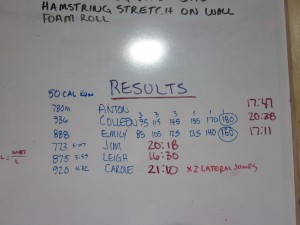 HAMSTRING STRETCH ON WALL
FOAM ROLL
RESULTS
50 CAL Row
780m ANTON 17:47
936 COLLEEN 95 115 145 155 170 180 20:38
888 EMILY 85 105 125 135 140 150 17:11
773 JIM 20:18
875 LEIGH 16:30
920 CAROLE 21:10 x2 LATERAL JUMPS